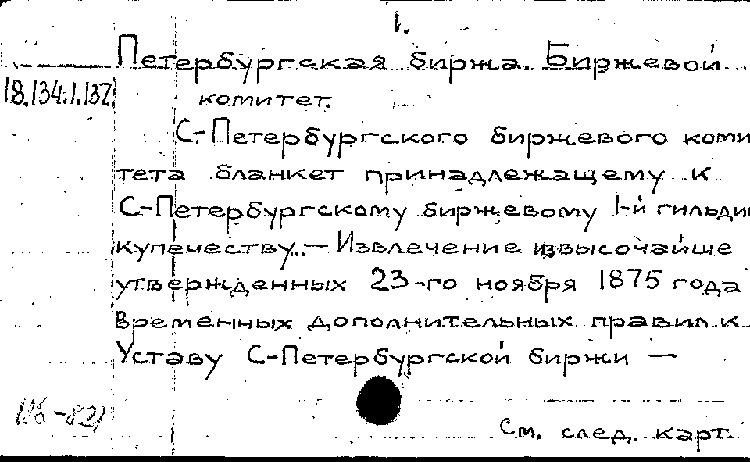 1.
Петербургская биржа. Биржевой
18.134.1.137
комитет.
С.-Петербургского биржевого коми
тета бланкет принадлежащему к
С-Петербургскому биржевому 1-й гильдии
купечеству. — Извлечение из высочайше
утвержденных 23-го ноября 1875 года
временных дополнительных правил к
Уставу С-Петербургской биржи —
См. след. карт.